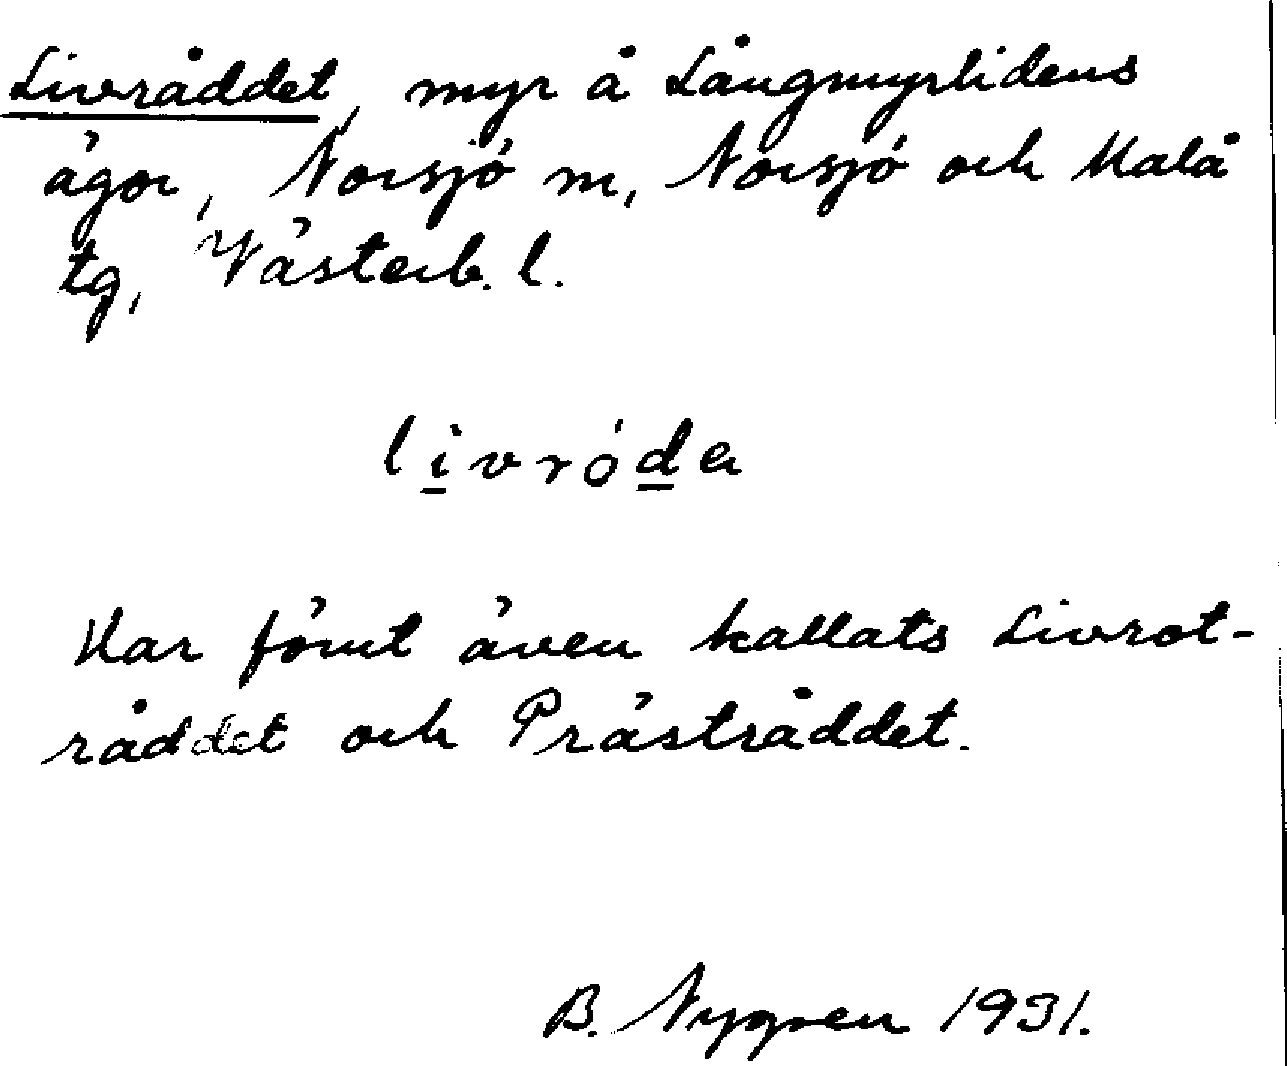 Livråddet, myr å Långmyrlidens
ägor, Norsjö m, Norsjö och Malå
tg, Västerb. l.
livróda
Har förut även kallats Livrot-
råddet och Prästråddet.
B. Nygren 1931.